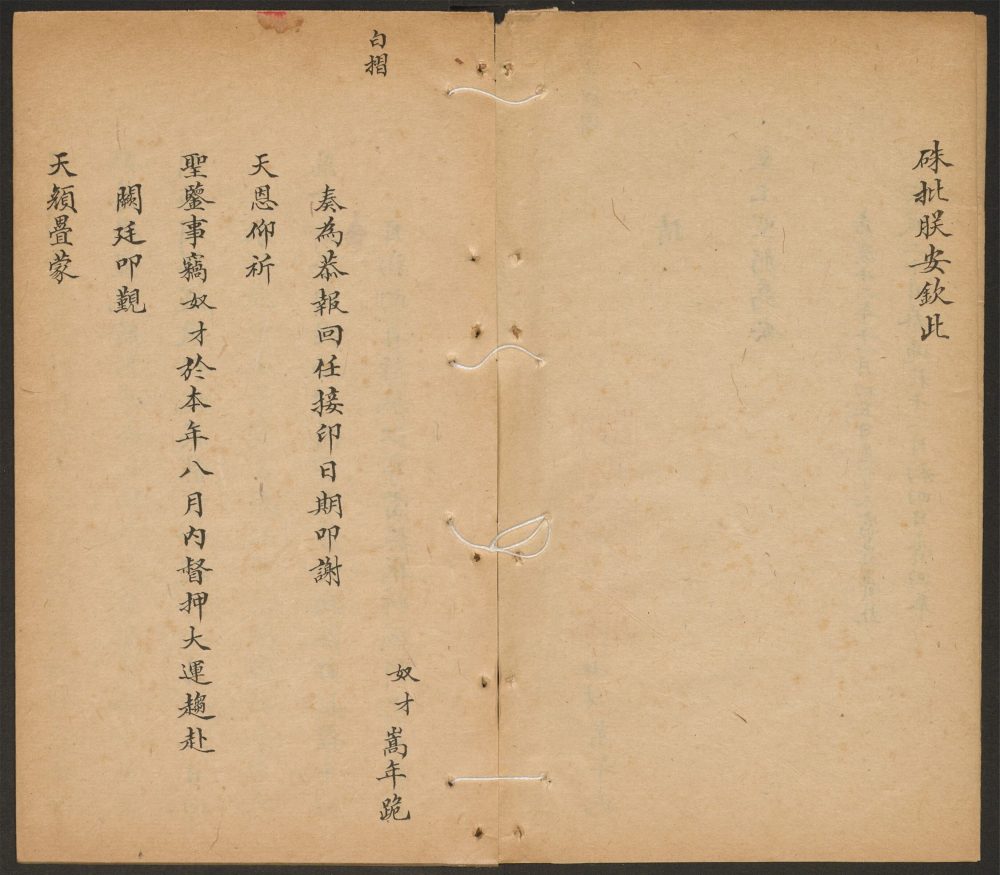 硃批朕安欽此
白摺
奴才嵩年跪
奏為恭報回任接印日期叩謝
天恩仰祈
聖鑒事竊奴才於本年八月内督押大運趨赴
闕廷叩覲
天顏疊蒙